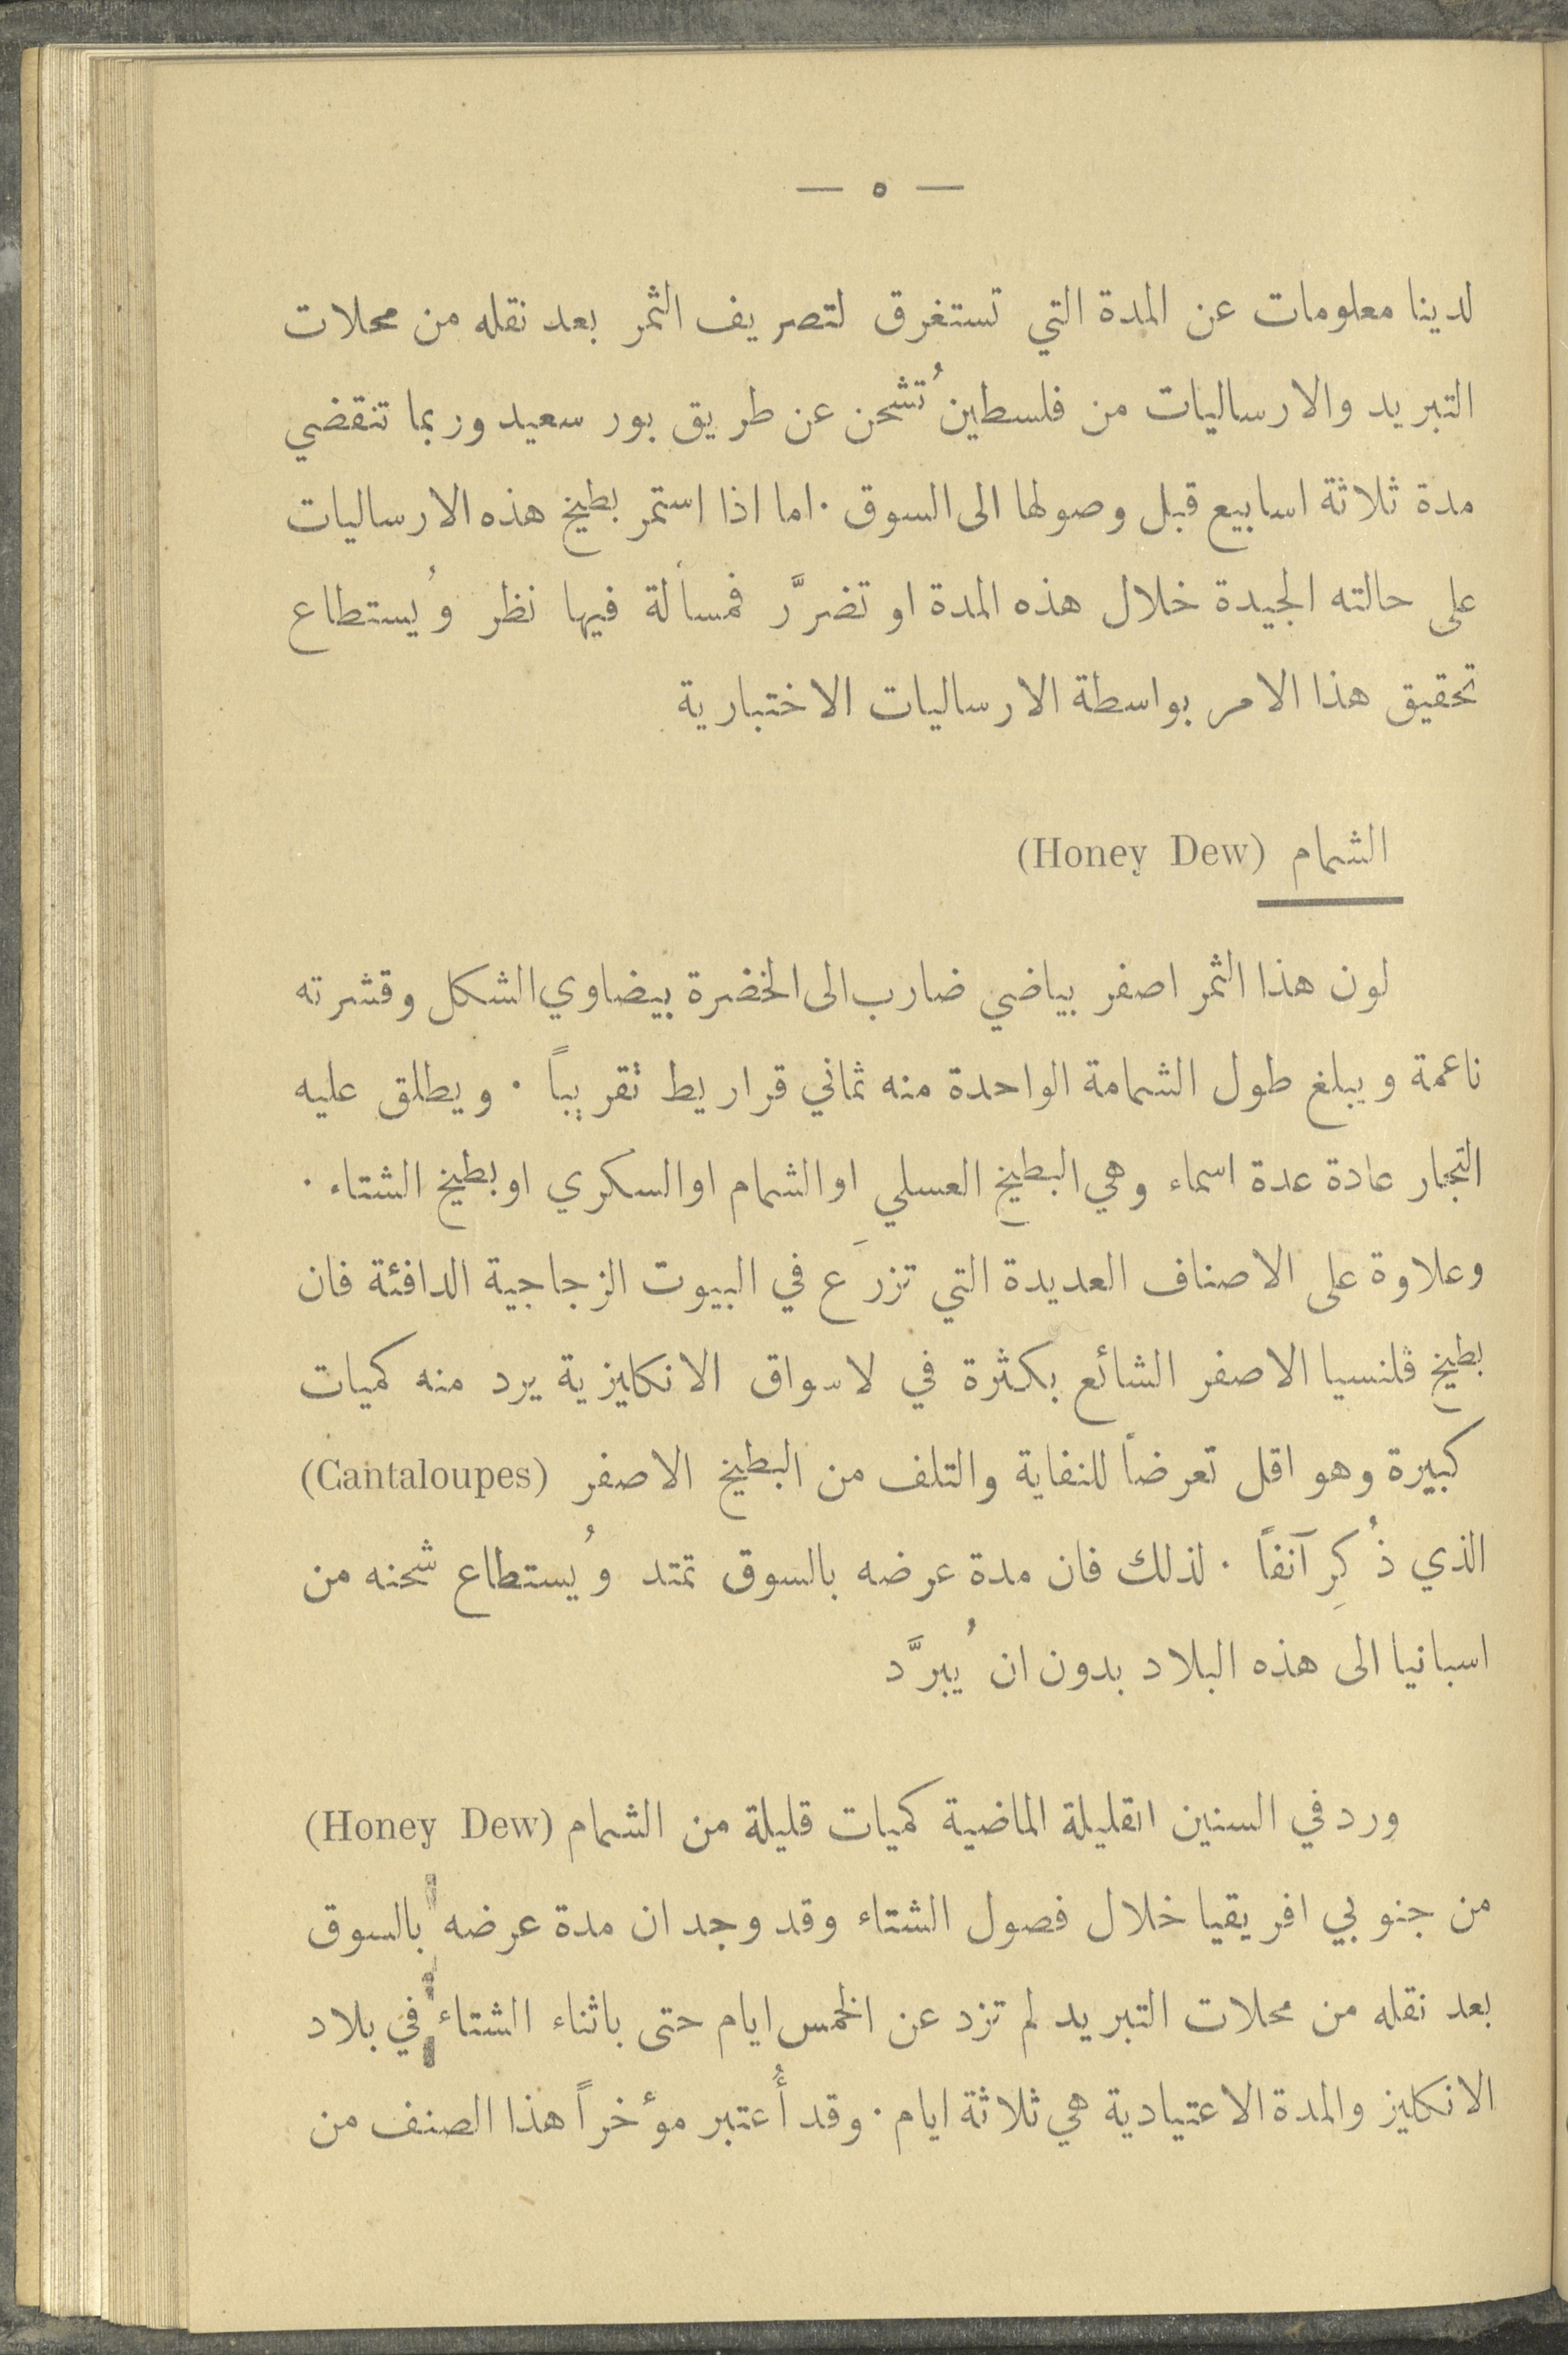 — ٥ —
لدينا معلومات عن المدة التي تستغرق لتصريف الثمر بعد نقله من محلات
التبريد والارساليات من فلسطين تُشحن عن طريق بور سعيد وربما تنقضي
مدة ثلاثة اسابيع قبل وصولها الى السوق ٠ اما اذا استمر بطيخ هذه الارساليات
على حالته الجيدة خلال هذه المدة او تضرَّر فمسألة فيها نظر ويُستطاع
تحقيق هذا الامر بواسطة الارساليات الاختبارية
الشمام (Honey Dew)
لون هذا الثمر اصفر بياضي ضارب الى الخضرة بيضاوي الشكل وقشرته
ناعمة ويبلغ طول الشمامة الواحدة منه ثماني قراريط تقريباً ٠ ويطلق عليه
التجار عادة عدة اسماء وهي البطيخ العسلي او الشمام او السكري او بطيخ الشتاء ٠
وعلاوة على الاصناف العديدة التي تزرَع في البيوت الزجاجية الدافئة فان
بطيخ ڤلنسيا الاصفر الشائع بكثرة في لاسواق الانكليزية يرد منه كميات
كبيرة وهو اقل تعرضاً للنفاية والتلف من البطيخ الاصفر (Cantaloupes)
الذي ذُكِر آنفاً ٠ لذلك فان مدة عرضه بالسوق تمتد ويُستطاع شحنه من
اسبانيا الى هذه البلاد بدون ان يُبرَّد
ورد في السنين القليلة الماضية كميات قليلة من الشمام (Honey Dew)
من جنوبي افريقيا خلال فصول الشتاء وقد وجد ان مدة عرضه بالسوق
بعد نقله من محلات التبريد لم تزد عن الخمس ايام حتى باثناء الشتاء في بلاد
الانكليز والمدة الاعتيادية هي ثلاثة ايام ٠ وقد أُعتبر مؤخراً هذا الصنف من